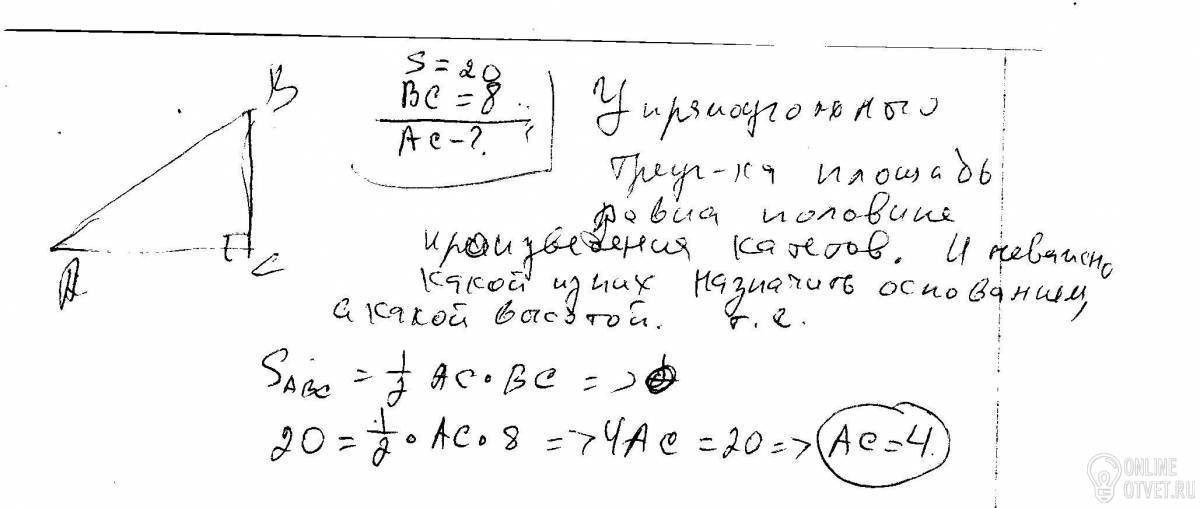 B
S = 20
BC = 8
AC - ?
A
C
У прямоугольного
треуг-ка площадь
равна половине
произведения катетов. И неважно
какой из них назначить основанием,
а какой высотой. т.е.
S ABC = 1/2 AC · BC =>
20 = 1/2 · AC · 8 => 4AC = 20 => AC = 4.
ONLINE
OTVET.RU